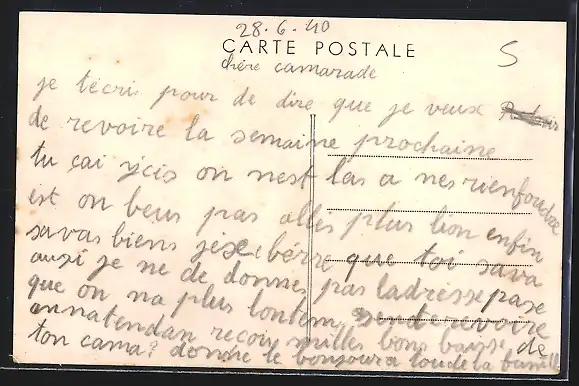 28.6.40
CARTE POSTALE
S
chère camarade
je técris pour de dire que je veux
de revoire la semaine prochaine
tu çai ycis on nest las a nes rien foudre
est on beus pas allés plus lion enfin
savas biens jésebérre que toi sava
ausi je ne de donnes pas ladrésse pase
que on na plus lontem de revoire
annatendan recois milles bons baisse de
ton cama? donne le bonsoura toude la